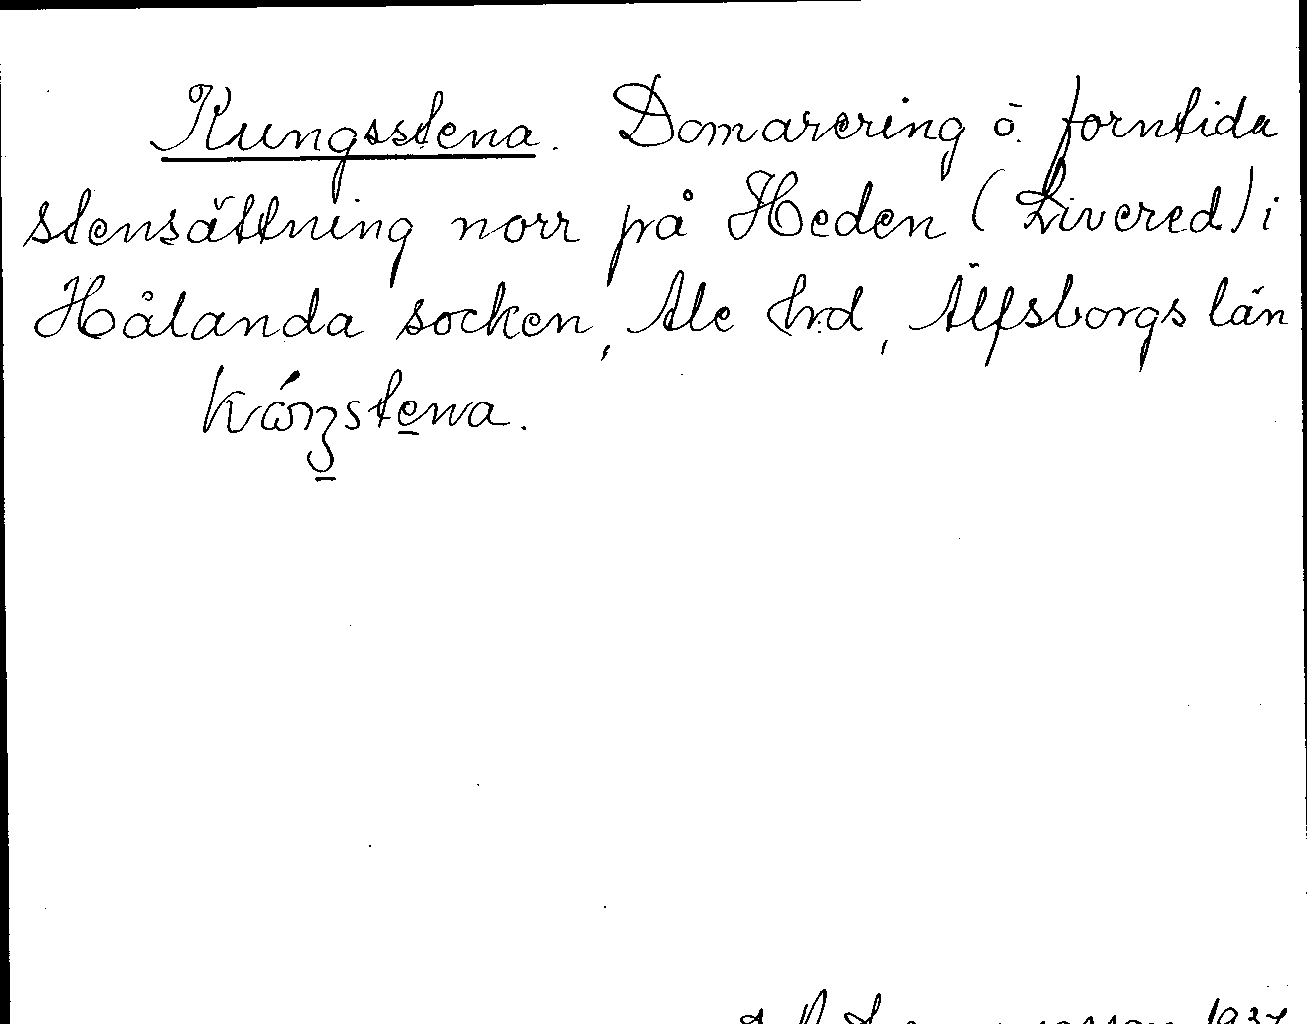 Kungsstena. Domarering o. forntida
stensättning norr på Heden (Livered) i
Hålanda socken, Ale hrd, Älfsborgs län
kóŋstena.
1937